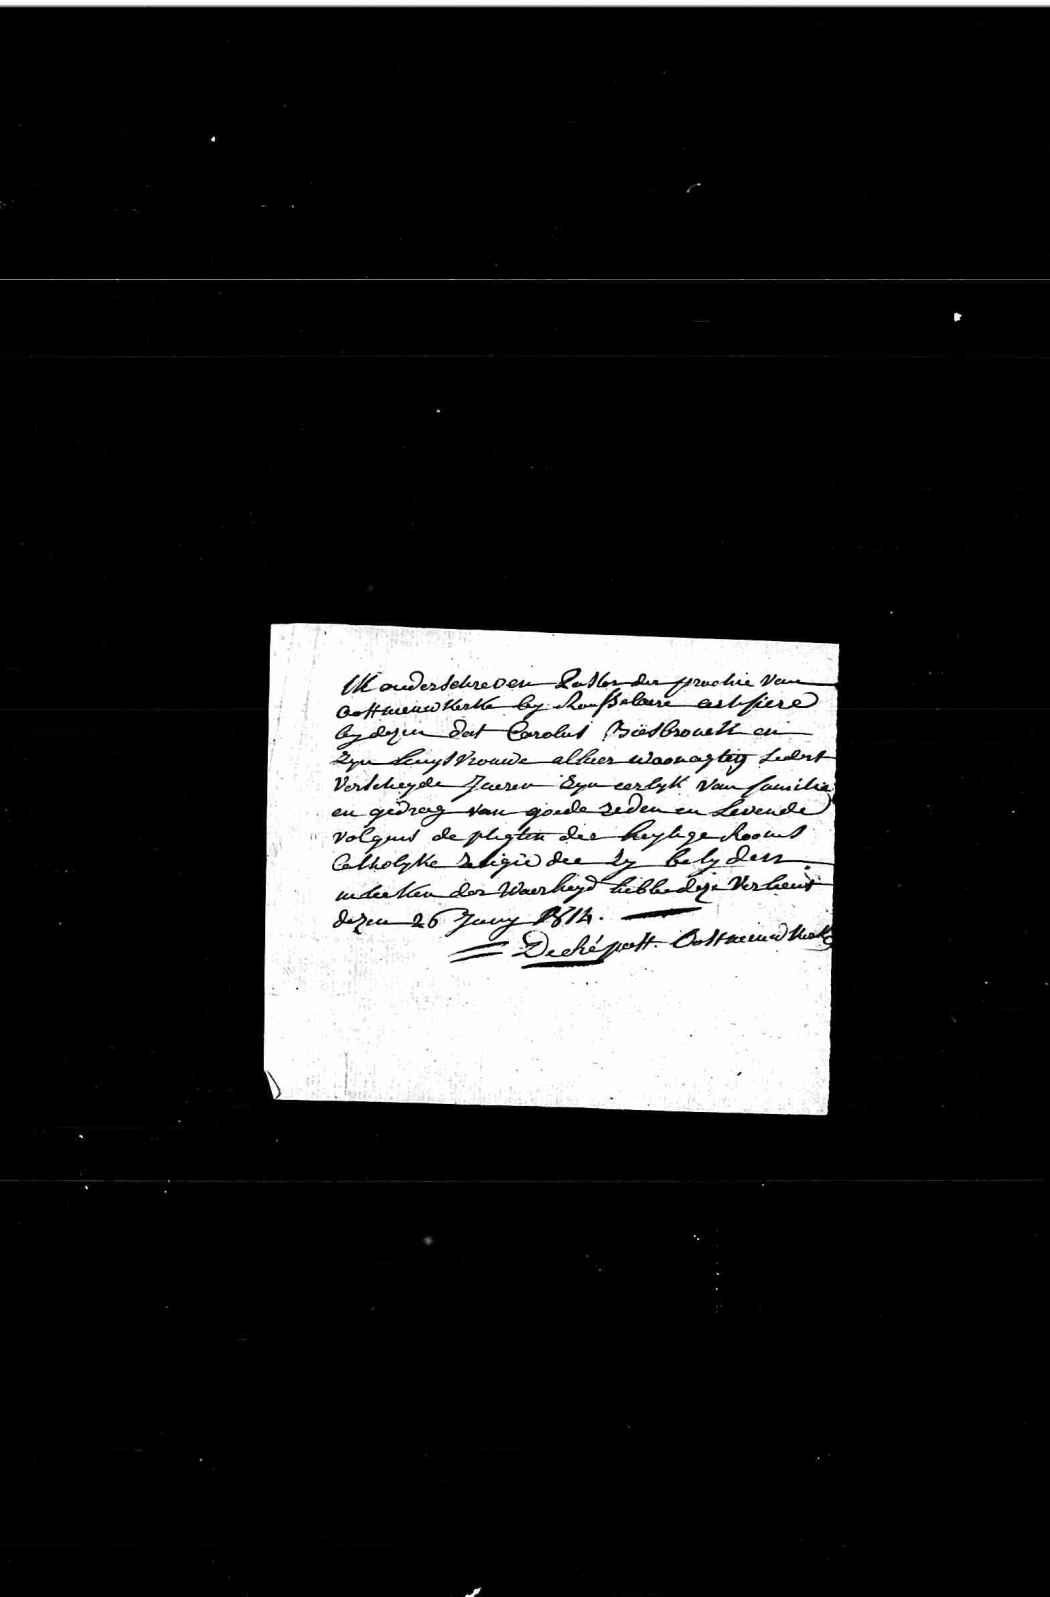 Ik onderschreven Pastor der prochie van
Oostnieuwkerke by Rousselaere certifiere
by dezen dat Carolus Biesbrouck en
Zyn huysvrouwe alhier woonagtig sedert
verscheyde Jaeren Zyn eerlyk van familie
en gedrag van goede zeden en Levende
volgens de pligten der heylige Rooms
Catholyke Religie die Zy belyden.
in teeken der Waerheyd hebbe deze verleent
dezen 26 Juny 1814.
Oostnieuwkerke